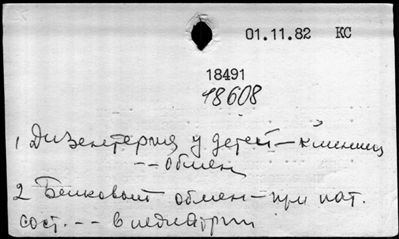 01.11.82 КС
18491
18608
1 Дизентерия у детей — клиниц
-- обмен
2 Белковый обмен — при пат.
сост. --- в педиатрии